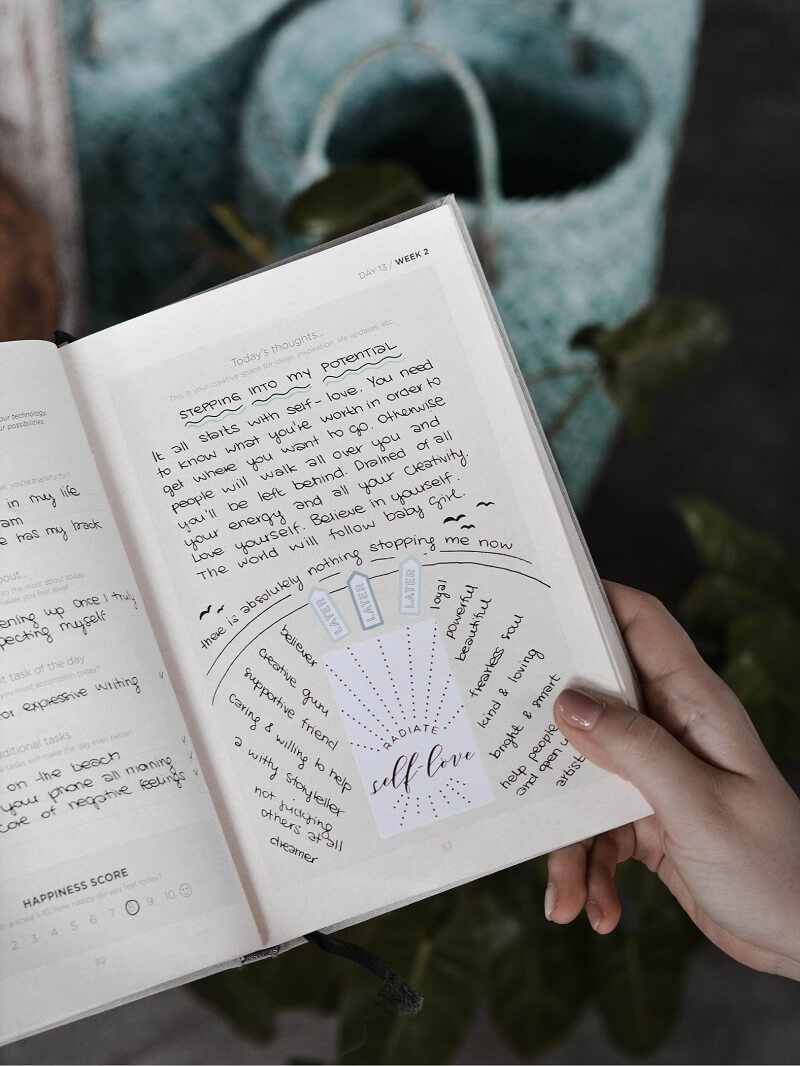 our technology,
ur possibilities.
what you're thankful for?
in my life
am
e has my back
bout...
to the most about today
makes you feel alive!
ening up once I truly
pecting myself
nt task of the day
you must accomplish today?
or expressive writing
ditional tasks
tasks will make the day even better!
on the beach
your phone all morning
care of negative feelings
HAPPINESS SCORE
n a scale 1-10, how happy do you feel today?
2 3 4 5 6 7 8 9 10
82
DAY 13 / WEEK 2
Today's thoughts...
This is your creative space for ideas, inspiration, life updates, etc.
STEPPING INTO MY POTENTIAL
It all starts with self-love. You need
to know what you're worth in order to
get where you want to go. Otherwise
people will walk all over you and
you'll be left behind. Drained of all
your energy and all your creativity.
Love yourself. Believe in yourself.
The world will follow baby girl.
there is absolutely nothing stopping me now
LATER
LATER
LATER
believer
creative guru
supportive friend
caring & willing to help
a witty storyteller
not judging
others at all
dreamer
RADIATE
self-love
loyal
powerful
beautiful
fearless soul
kind & loving
bright & smart
help people
and open
artist
83